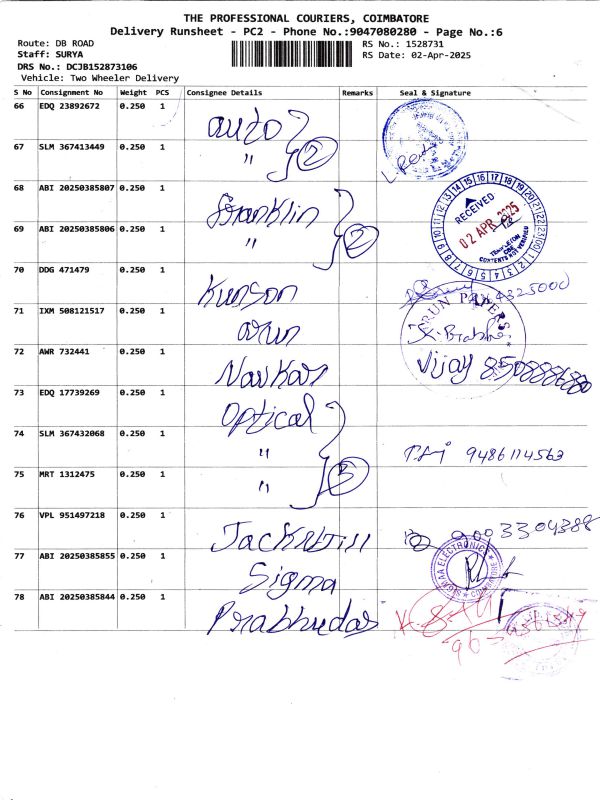 THE PROFESSIONAL COURIERS, COIMBATORE
Delivery Runsheet - PC2 - Phone No.:9047080280 - Page No.:6
Route: DB ROAD
RS No.: 1528731
Staff: SURYA
RS Date: 02-Apr-2025
DRS No.: DCJB152873106
Vehicle: Two Wheeler Delivery
S No Consignment No Weight PCS Consignee Details Remarks Seal & Signature
66 EDQ 23892672 0.250 1 auto
67 SLM 367413449 0.250 1 " 2
68 ABI 20250385807 0.250 1 Franklin
RECEIVED
02 APR 2025
CONTENTS NOT VERIFIED
69 ABI 20250385806 0.250 1 " 2
70 DDG 471479 0.250 1 Kunson
71 IXM 508121517 0.250 1 arun
72 AWR 732441 0.250 1 Navkar Vijay
73 EDQ 17739269 0.250 1 Optical
74 SLM 367432068 0.250 1 " 9486114563
75 MRT 1312475 0.250 1 " 3
76 VPL 951497218 0.250 1 Jack&Jill 9003304388
77 ABI 20250385855 0.250 1 Sigma
SIGMAA ELECTRONICS COIMBATORE
78 ABI 20250385844 0.250 1 Prabhudas